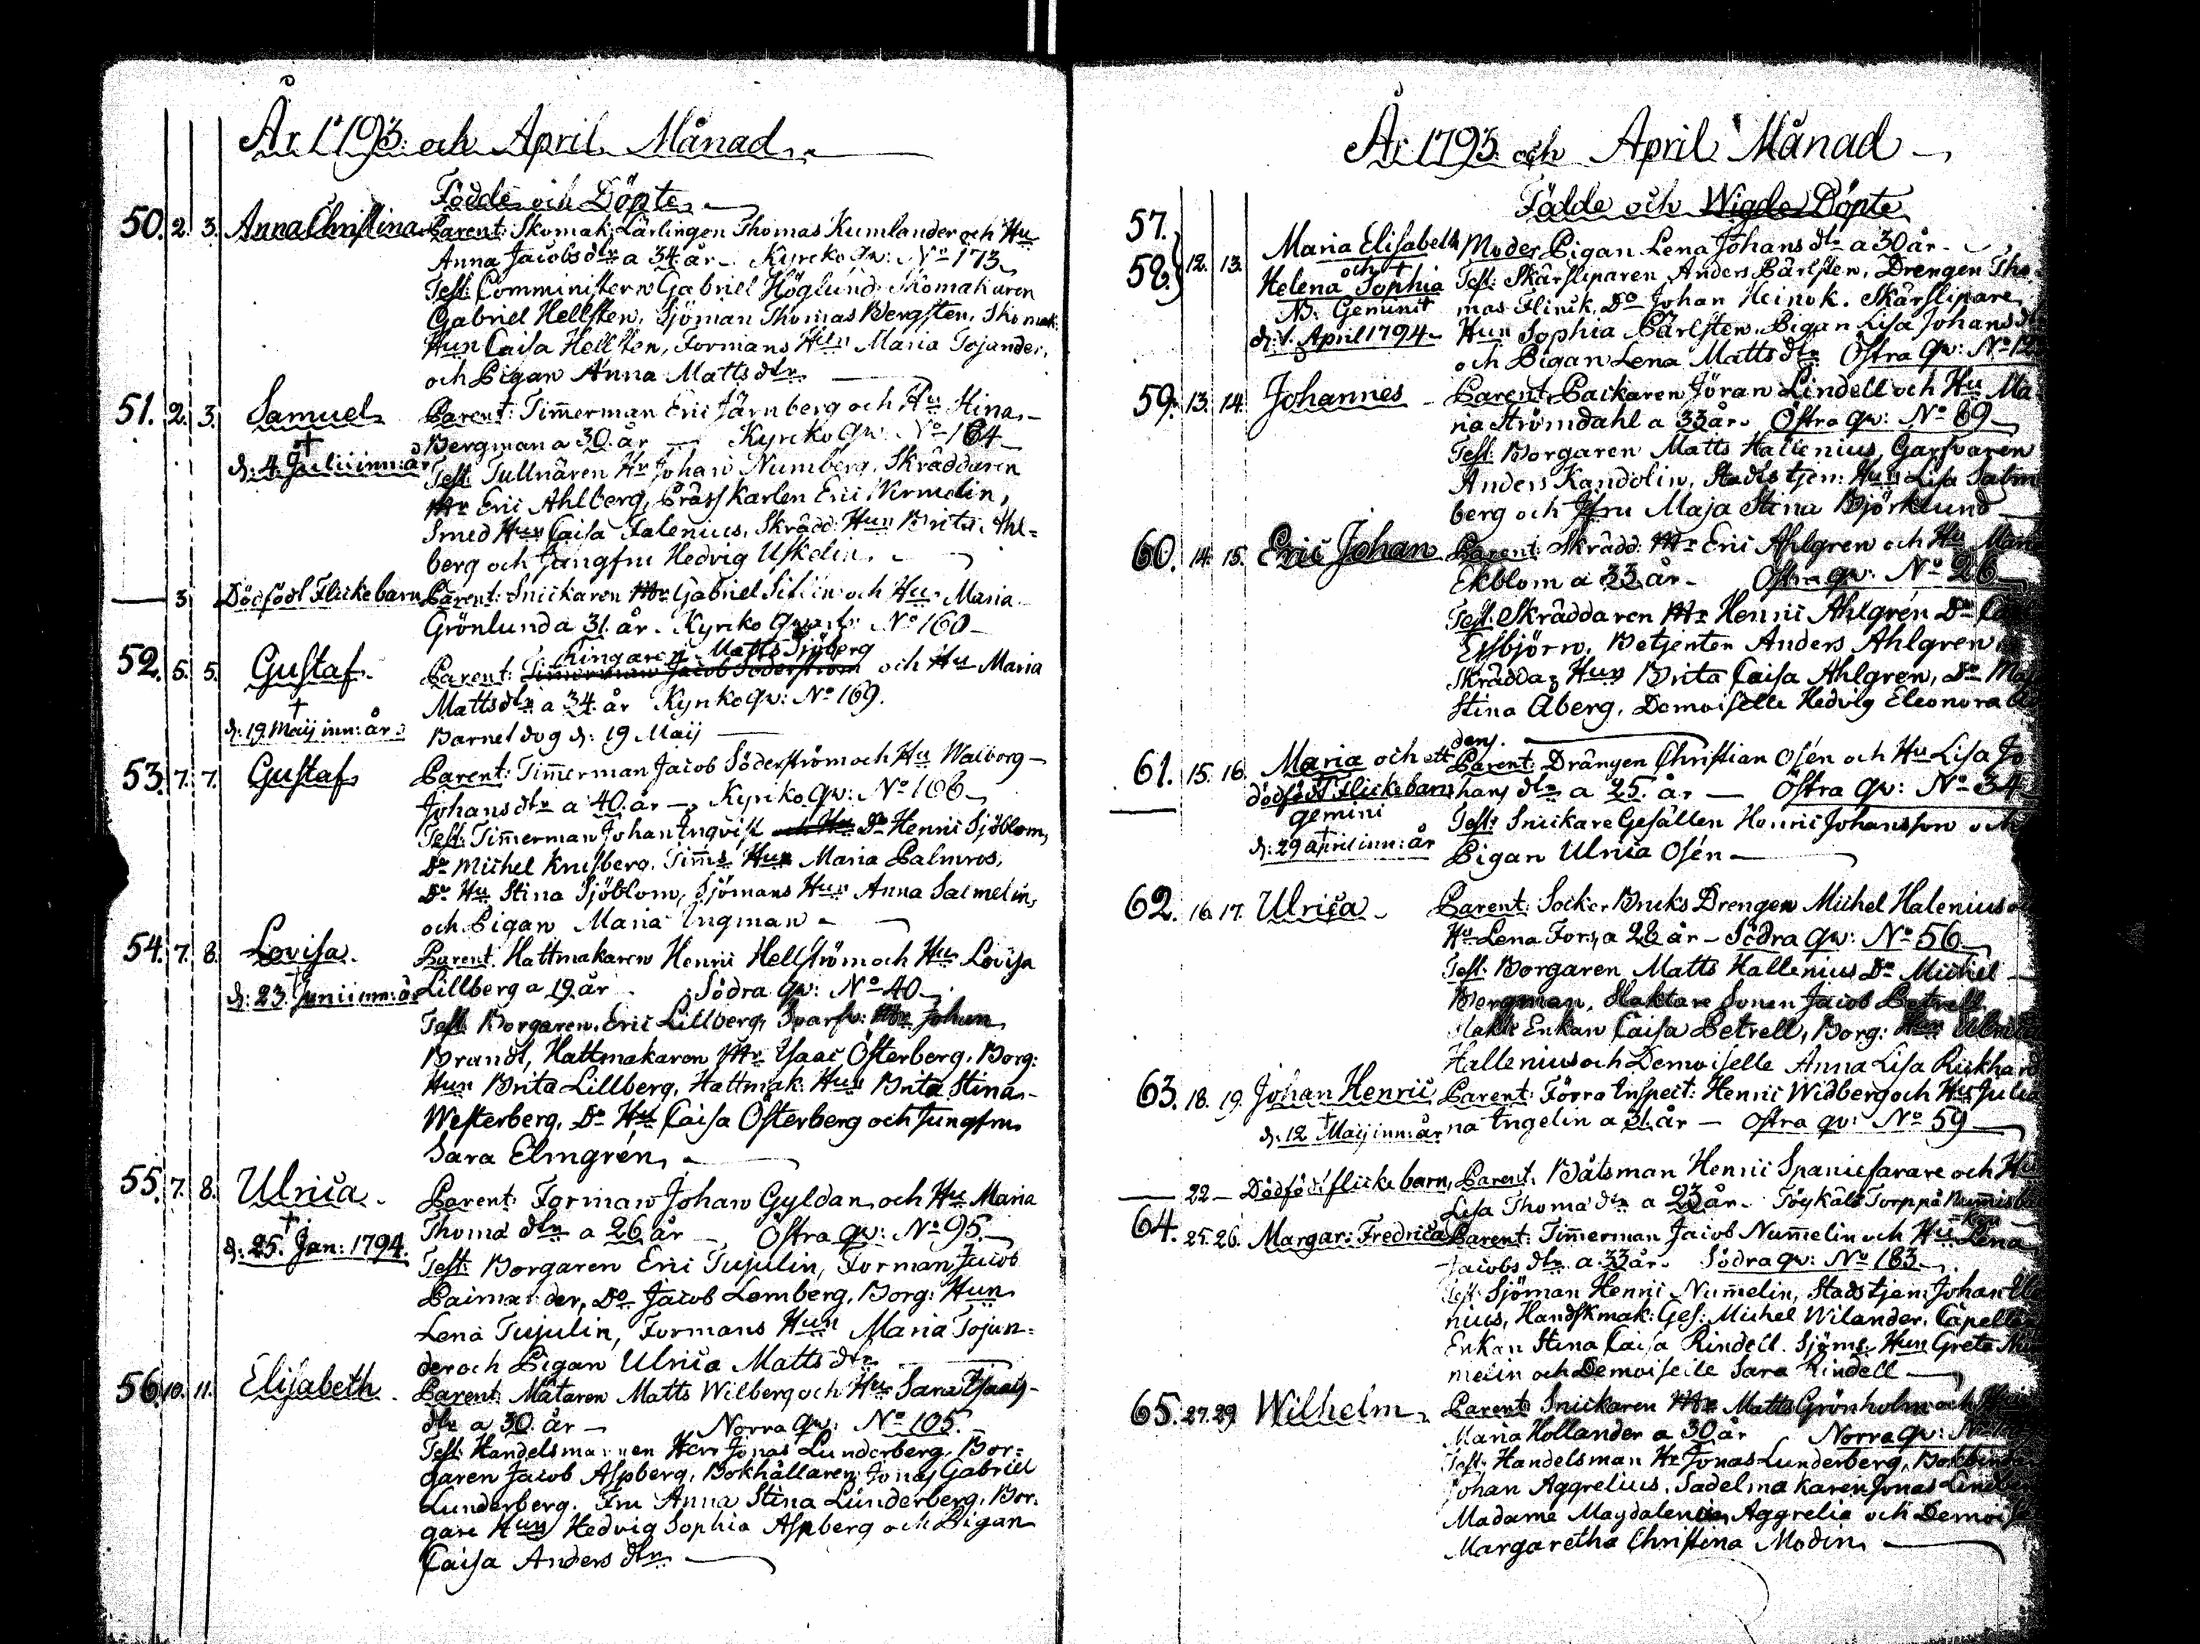 År 1793. och April Månad
Födde och Döpte
50. 2. 3. Anna Christina Parent: Skomak: Lärlingen Thomas Kumlander och Hu
Anna Jacobs dtr a 34 år. Kyrko qv: No 173
Test: Comministern Gabriel Höglund. Skomakaren
Gabriel Hellsten, Sjöman Thomas Bergsten, Skomak:
Hun Caisa Hellsten, Formans Hun Maria Tojander,
och Pigan Anna Matts dtr
51. 2. 3. Samuel Parent: Timerman Eric Järnberg och Hu Stina
Bergman a 30 år Kyrko qv: No 164
†
d: 4. Julii inn: år Test: Tullnären Hr Johan Numberg, Skräddaren
Mr Eric Ahlberg, Eric
Smed Hun Caisa Falenius, Skrädd: Hun Brita Ahl=
berg och Jungfru Hedvig Uskelin.
3. Dödfödt Flickebarn Parent: Snickaren Mr Gabriel och Hu Maria
Grönlund a 31 år. Kyrko No 160
Matts Sjöberg
52. 5. 5. Gustaf. Parent: Timerman Jacob Söderström och Hu Maria
Matts dtr a 34 år Kyrko qv: No 169.
†
d: 19 Maij inn: år Barnet dog d: 19 Maij
53. 7. 7. Gustaf Parent: Timerman Jacob Söderström och Hu Walborg
Johans dtr a 40 år Kyrko qv: No 106
Test: Timerman Johan Ingvist och Hu Do Henric Sjöblom,
Do Michel Knisberg. Tims Hun Maria Palmros,
Do Hu Stina Sjöblom, Sjömans Hun Anna Salmelin,
och Pigan Maria Ingman
54. 7. 8. Lovisa. Parent. Hattmakaren Henric Hellström och Hu Lovisa
†
d: 23. Junii inn: år Lillberg a 19 år Södra qv: No 40
Test: Borgaren Eric Lillberg, Mr Johan
Brandt, Hattmakaren Mr Ysaac Österberg, Borg:
Hun Brita Lillberg, Hattmak: Hun Brita Stina
Westerberg, Do Hu Caisa Österberg och Jungfru
Sara Elmgrén
55. 7. 8. Ulrica. Parent: Forman Johan Gyldan och Hu Maria
†
d: 25. Jan: 1794. Thoma dtr a 26 år Östra qv: No 95
Test: Borgaren Eric Tujulin, Forman Jacob
Do Jacob Lomberg, Borg: Hun
Lena Tujulin, Formans Hun Maria Tojan=
der och Pigan Ulrica Matts dtr
56. 10. 11. Elisabeth. Parent: Mätaren Matts Wilberg och Hu Sara Ysaacs
dtr a 30 år Norra qv: No 105.
Test: Handelsmannen Herr Jonas Lunderberg, Bor=
garen Jacob Aspberg, Bokhållaren Jonas Gabriel
Lunderberg. Fru Anna Stina Lunderberg, Bor:
gare Hun Hedvig Sophia Aspberg och Pigan
Caisa Anders dtr
År 1793. och April Månad
Födde och Wigde Döpte
57.
58. 12. 13. Maria Elisabeth Moder Pigan Lena Johans dtr a 30 år
och †
Helena Sophia Test: Skärsliparen Anders Pärlsten, Drengen Tho-
Nb. Gemini mas Flinik, Do Johan Heinok. Skärslipare
d: 1. April 1794 Hun Sophia Pärlsten. Pigan Lisa Johans
och Pigan Lena Matts dtr Östra qv: No
59. 13. 14. Johannes Parent. Packaren Jöran Lindell och Hu Ma
ria Strömdahl a 33 år. Östra qv: No 69
Test: Borgaren Matts Hallenius, Garfvaren
Anders Kandolin, Stadstjen: Hun Lisa
berg och Jfru Maja Stina Björklund
60. 14. 15. Eric Johan Parent: Skrädd: Mr Eric Ahlgren och Hu
Ekblom a 33 år Östra qv: No 26
Test: Skräddaren Mr Henric Ahlgrén Do
Essbjörn. Betjenten Anders Ahlgren
Skräddar Hun Brita Caisa Ahlgren, Do
Stina Åberg, Demoiselle Hedvig Eleonora
61. 15. 16. Maria och ett Parent: Drängen Christian Osén och Hu Lisa Jo
dödfödt Flickebarn hans dtr a 25 år Östra qv: No 34
gemini
† Test: Snickare Gesällen Henric Johansson
d: 29 April inn: år Pigan Ulrica Osén
62. 16. 17. Ulrica Parent: Socker Bruks Drengen Michel Halenius
Hu Lena Fors, a 28 år Södra qv: No 56
Test: Borgaren Matts Hallenius Do Michel
Bergman, Slaktare Sonen Jacob Petrell
Enkan Caisa Petrell, Borg: Hun
Hallenius och Demoiselle Anna Lisa
63. 18. 19. Johan Henric Parent: Förra Inspect: Henric Widberg och Hu Julia
†
d: 12 Maij inn: år na Ingelin a 31 år Östra qv: No 59
22 Dödfödt flickebarn, Parent. Båtsman Henric Spaniefarare och Hu
Lisa Thoma dtr a 23 år. Torp på
64. 25. 26. Margar: Fredrica Parent: Timerman Jacob Numelin och Hu Lena
Jacobs dtr a 33 år. Södra qv: No 183
Test: Sjöman Henric Numelin, Stadstjen: Johan
nius, Handskmak: Ges: Michel Wilander,
Enkan Stina Caisa Rindell. Sjöms Hun Greta
melin och Demoiselle Sara Rindell
65. 27. 29 Wilhelm Parent: Snickaren Mr Matts Grönholm och
Maria Hollander a 30 år Norra qv:
Test: Handelsman Hr Jonas Lunderberg,
Johan Aggrelius, Sadelmakaren Jonas
Madame Magdalena Aggrelia och
Margaretha Christina Modin